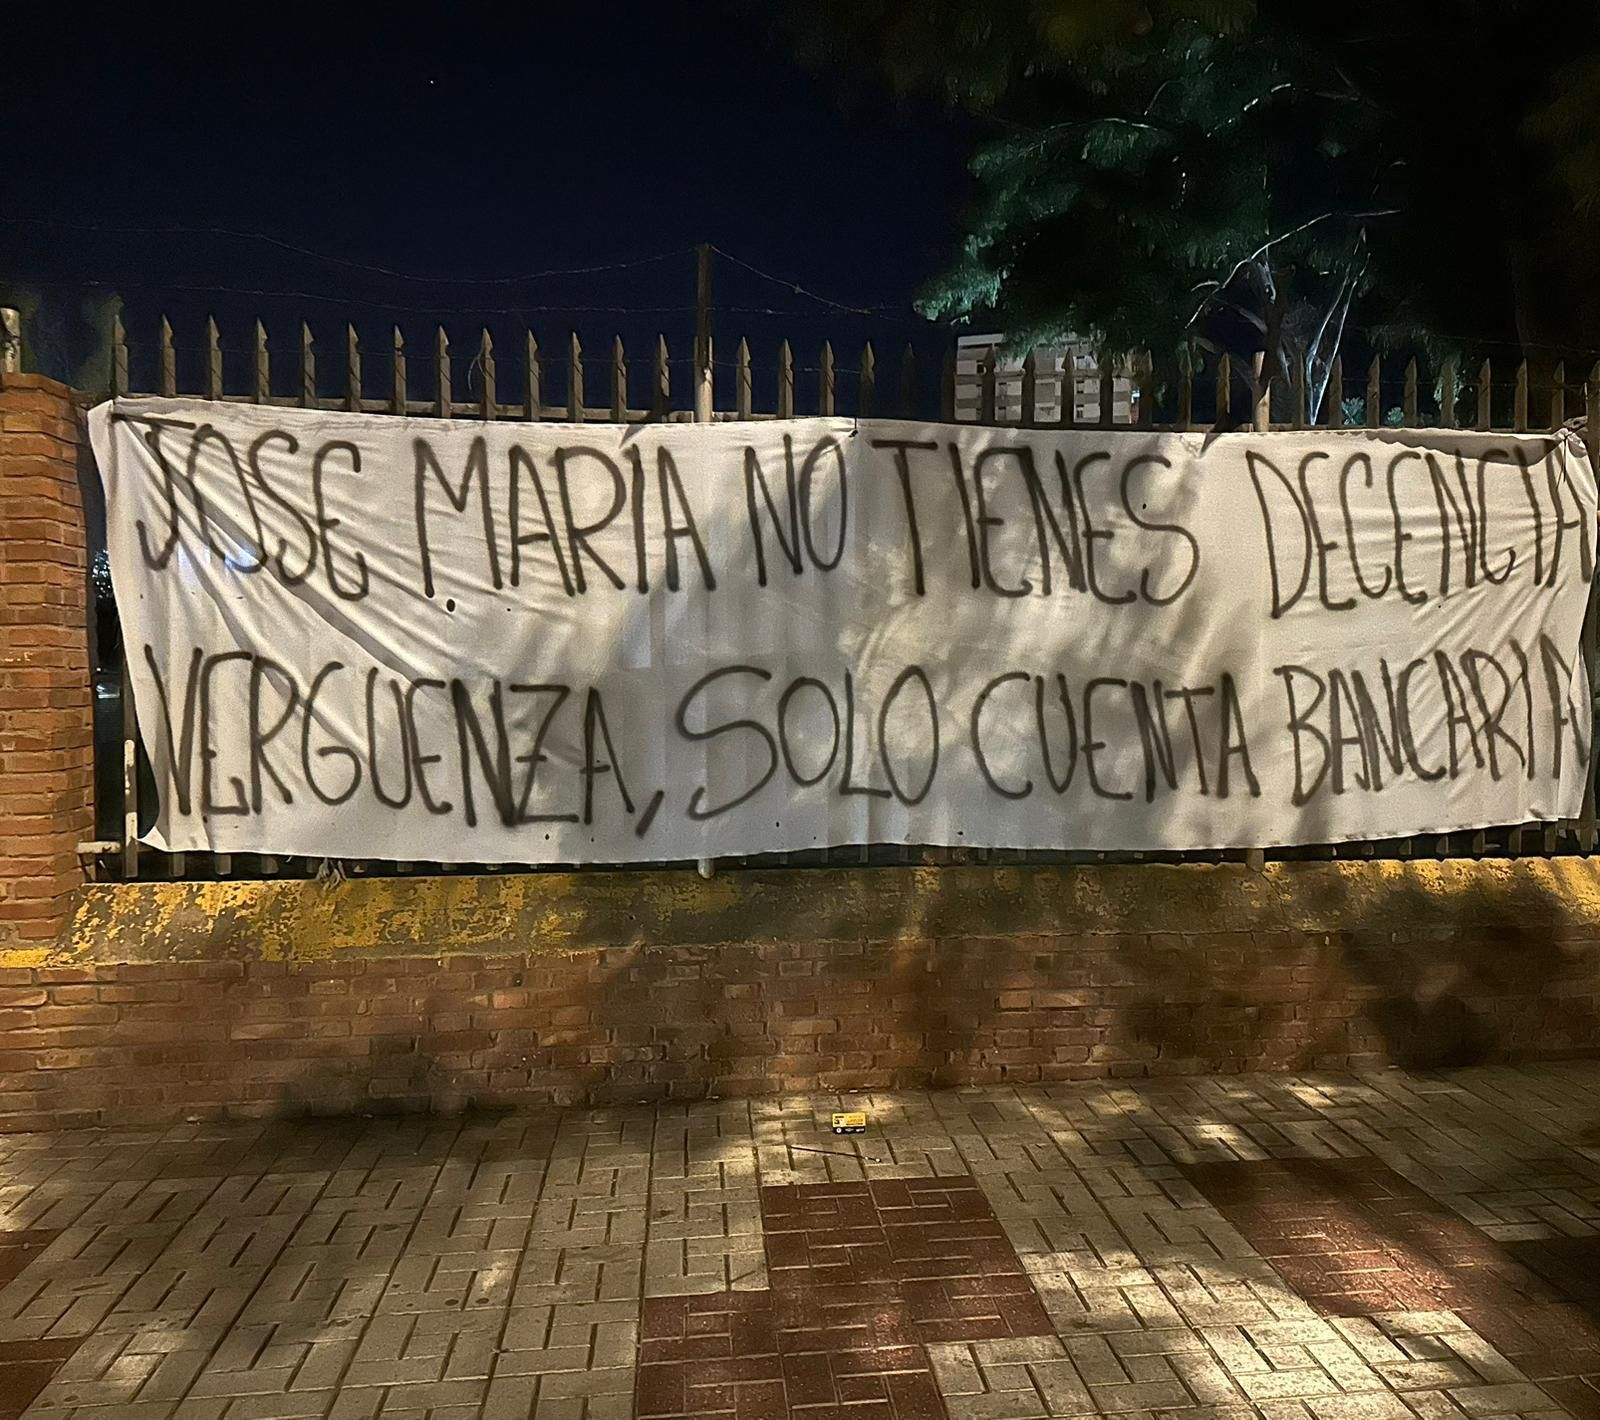 JOSE MARÍA NO TIENES DECENCIA
VERGUENZA, SOLO CUENTA BANCARIA